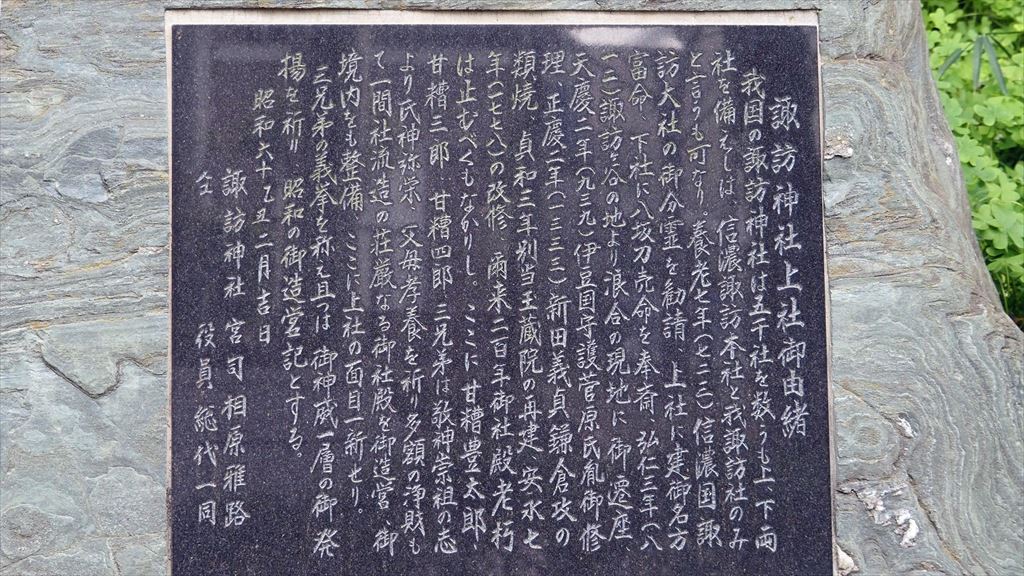 諏訪神社上社御由緒
我国の諏訪神社は五千社を数うも上下両
社を備えしは、信濃諏訪本社と我諏訪社のみ
と言うも可なり。養老七年(七二三)信濃国諏
訪大社の御分霊を勧請、上社に建御名方
富命、下社に八坂刀売命を奉斎、弘仁三年(八
一二)諏訪ヶ谷の地より浪合の現地に御遷座、
天慶二年(九三九)伊豆国守護菅原氏胤御修
理、正慶二年(一三三三)新田義貞鎌倉攻の
類焼、貞和三年別当玉蔵院の再建、安永七
年(一七七八)の改修、爾来二百年御社殿老朽
は止むべくもなかりし。ここに甘糟豊太郎、
甘糟三郎、甘糟四郎、三兄弟は敬神崇祖の志
より氏神弥栄、父母孝養を祈り多額の浄財も
て一間社流造の荘厳なる御社殿を御造営、御
境内をも整備、ここに上社の面目一新せり。
三兄弟の義挙を称え且は、御神威一層の御発
揚を祈り、昭和の御造営記とする。
昭和六十乙丑二月吉日
諏訪神社 宮司 相原雅路
仝 役員・総代一同